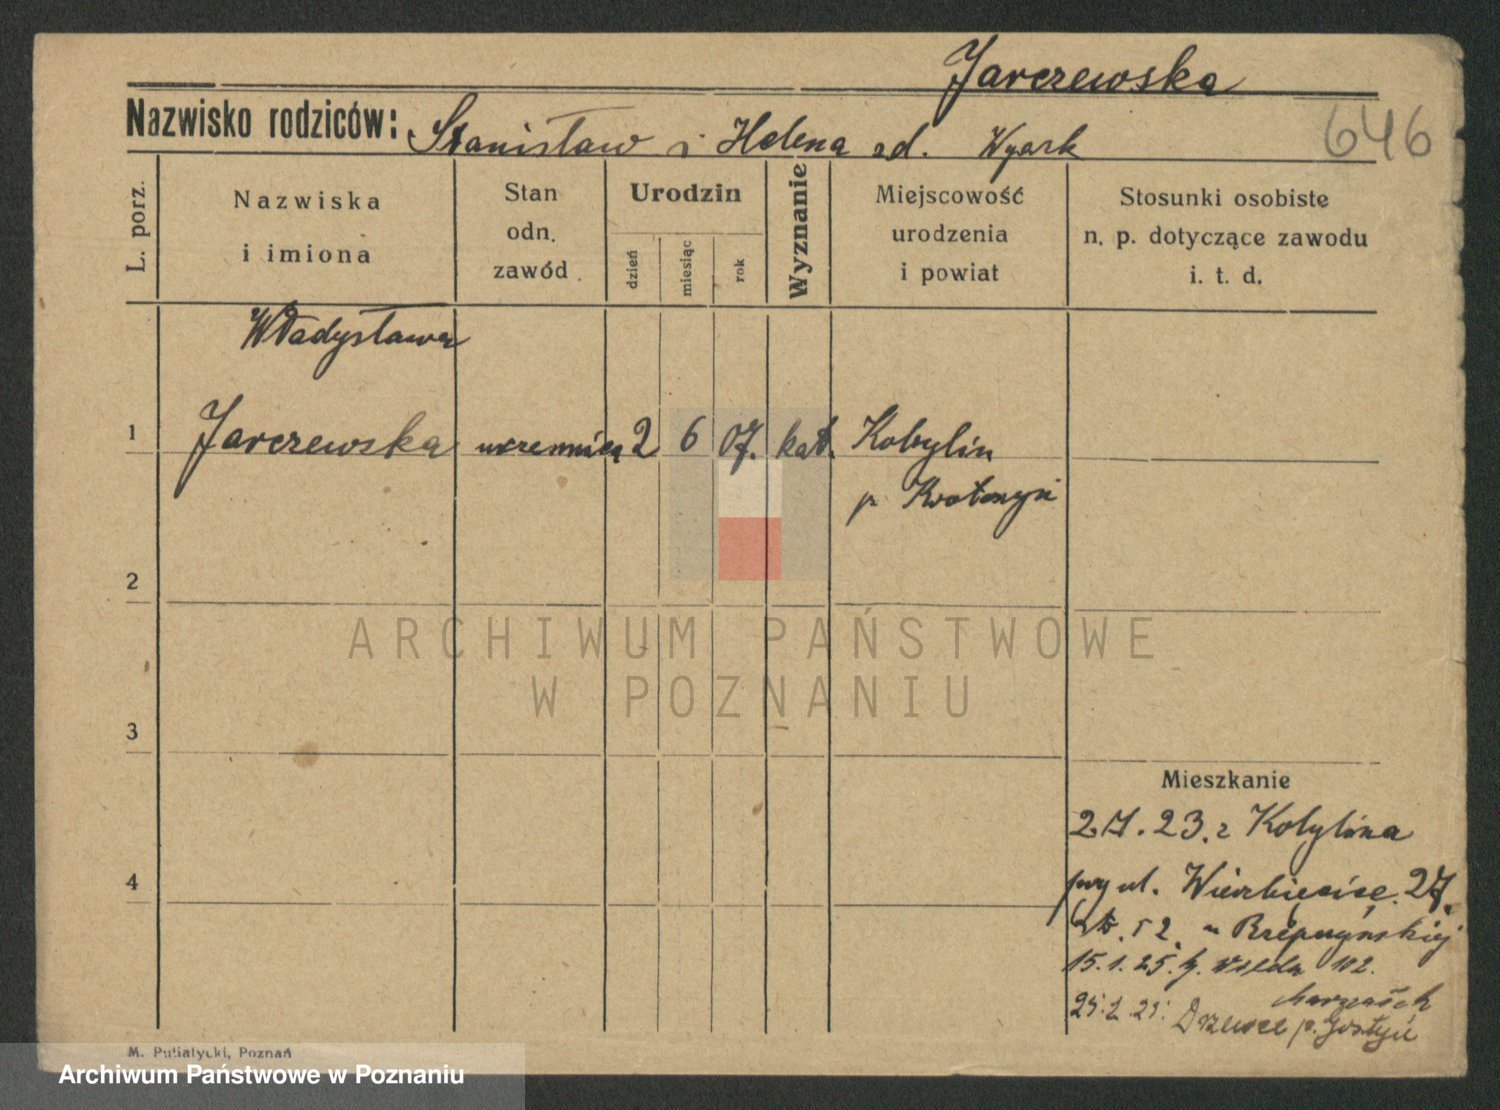 Jarczewska
Nazwisko rodziców: Stanisław i Helena zd. Wyark
646
L. porz.
Nazwiska
i imiona
Stan
odn.
zawód
Urodzin
dzień
miesiąc
rok
Wyznanie
Miejscowość
urodzenia
i powiat
Stosunki osobiste
n. p. dotyczące zawodu
i. t. d.
Władysława
1 Jarczewska uczennica 2 6 07. kat. Kobylin
p. Krotoszyn
2
3
4
ARCHIWUM PAŃSTWOWE
W POZNANIU
Mieszkanie
23. z Kobylina
przy ul. Wierzbięcice 27.
15.1.25. Wilda 102.
Drzewce p. Gostyń
M. Putiatycki, Poznań
Archiwum Państwowe w Poznaniu